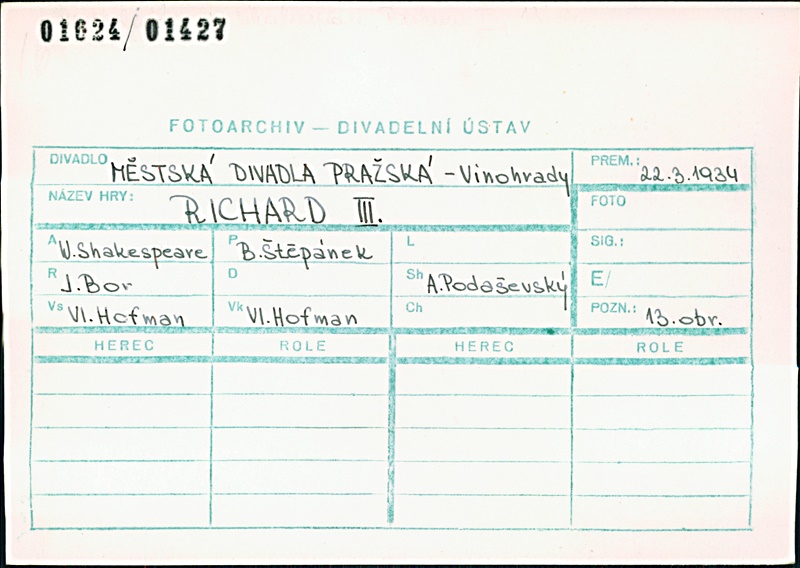 01624/01427
FOTOARCHIV — DIVADELNÍ ÚSTAV
DIVADLO MĚSTSKÁ DIVADLA PRAŽSKÁ - Vinohrady
PREM.: 22.3.1934
NÁZEV HRY: RICHARD III.
FOTO
A W.Shakespeare P B.Štěpánek L
SIG.:
R J.Bor D Sh A.Podaševský
E/
Vs Vl.Hofman Vk Vl.Hofman Ch
POZN.: 13.obr.
HEREC ROLE HEREC ROLE